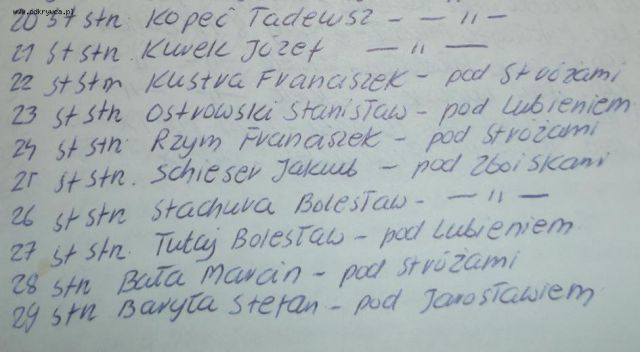 www.odkrywca.pl
20 st stn. Kopeć Tadeusz - — " —
21 st stn. Kurek Józef — " —
22 st stn Kustra Franciszek - pod Stróżami
23 st stn Ostrowski Stanisław - pod Lubieniem
24 st stn. Rzym Franciszek - pod Stróżami
25 st stn. Schieser Jakub - pod Zboiskami
26 st stn Stachura Bolesław - — " —
27 st stn. Tutaj Bolesław - pod Lubieniem
28 stn Bała Marcin - pod Stróżami
29 stn Baryła Stefan - pod Jarosławiem